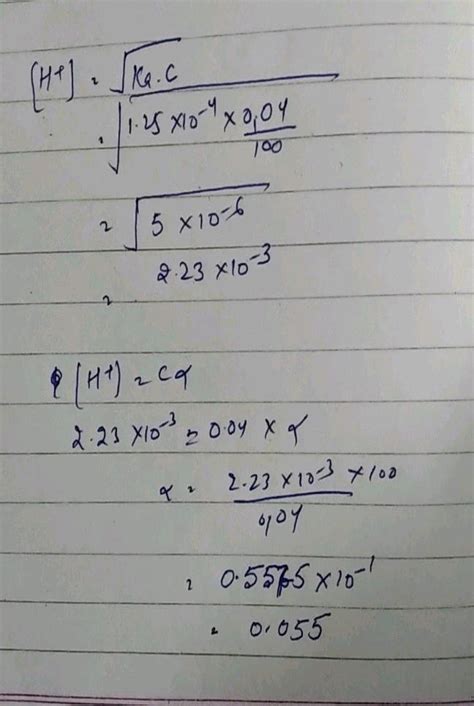 [H+] = √Ka.C
= √1.25 × 10⁻⁴ × 0,04/100
= √5 × 10⁻⁶
= 2.23 × 10⁻³
[H+) = Cα
2.23 × 10⁻³ = 0.04 × α
α = 2.23 × 10⁻³ × 100/0,04
= 0.5575 × 10⁻¹
= 0.055